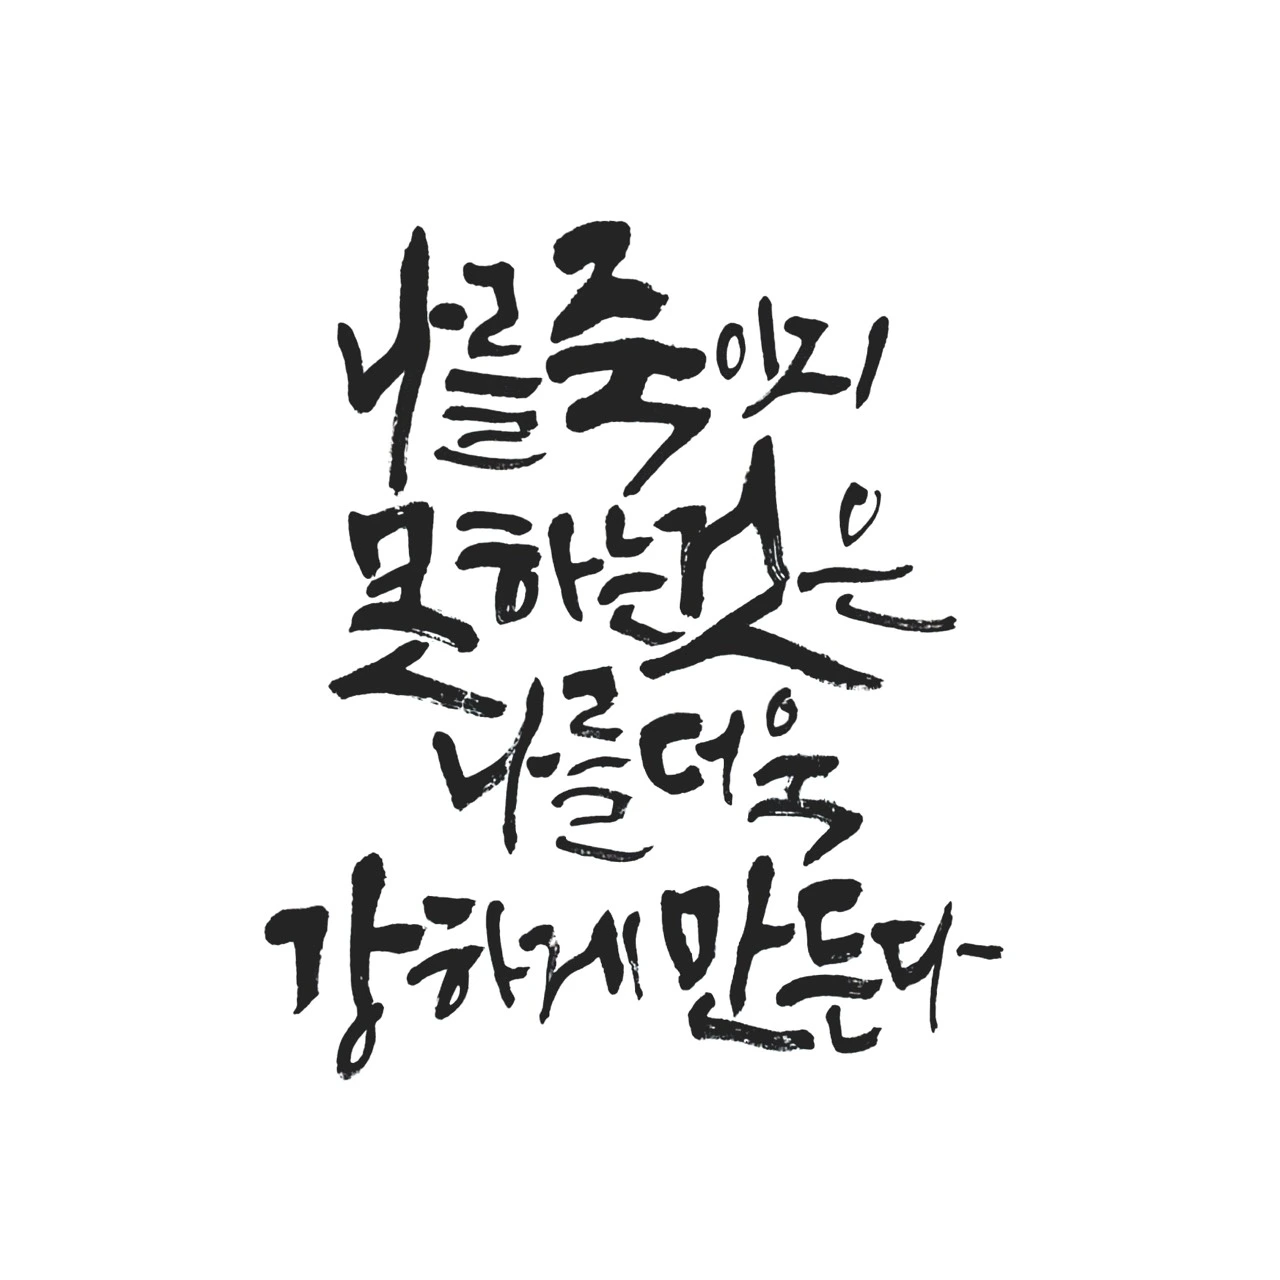 나를 죽이지
못하는 것은
나를 더욱
강하게 만든다